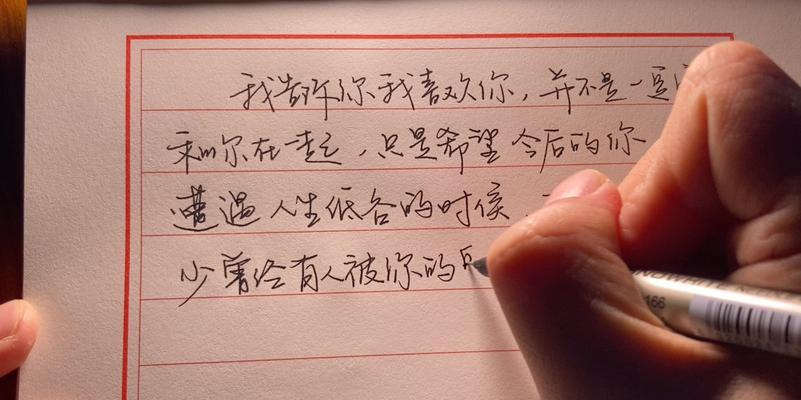 我告诉你我喜欢你，并不是一定
和你在一起，只是希望今后的你
遭遇人生低谷的时候，
少曾经有人被你的
166